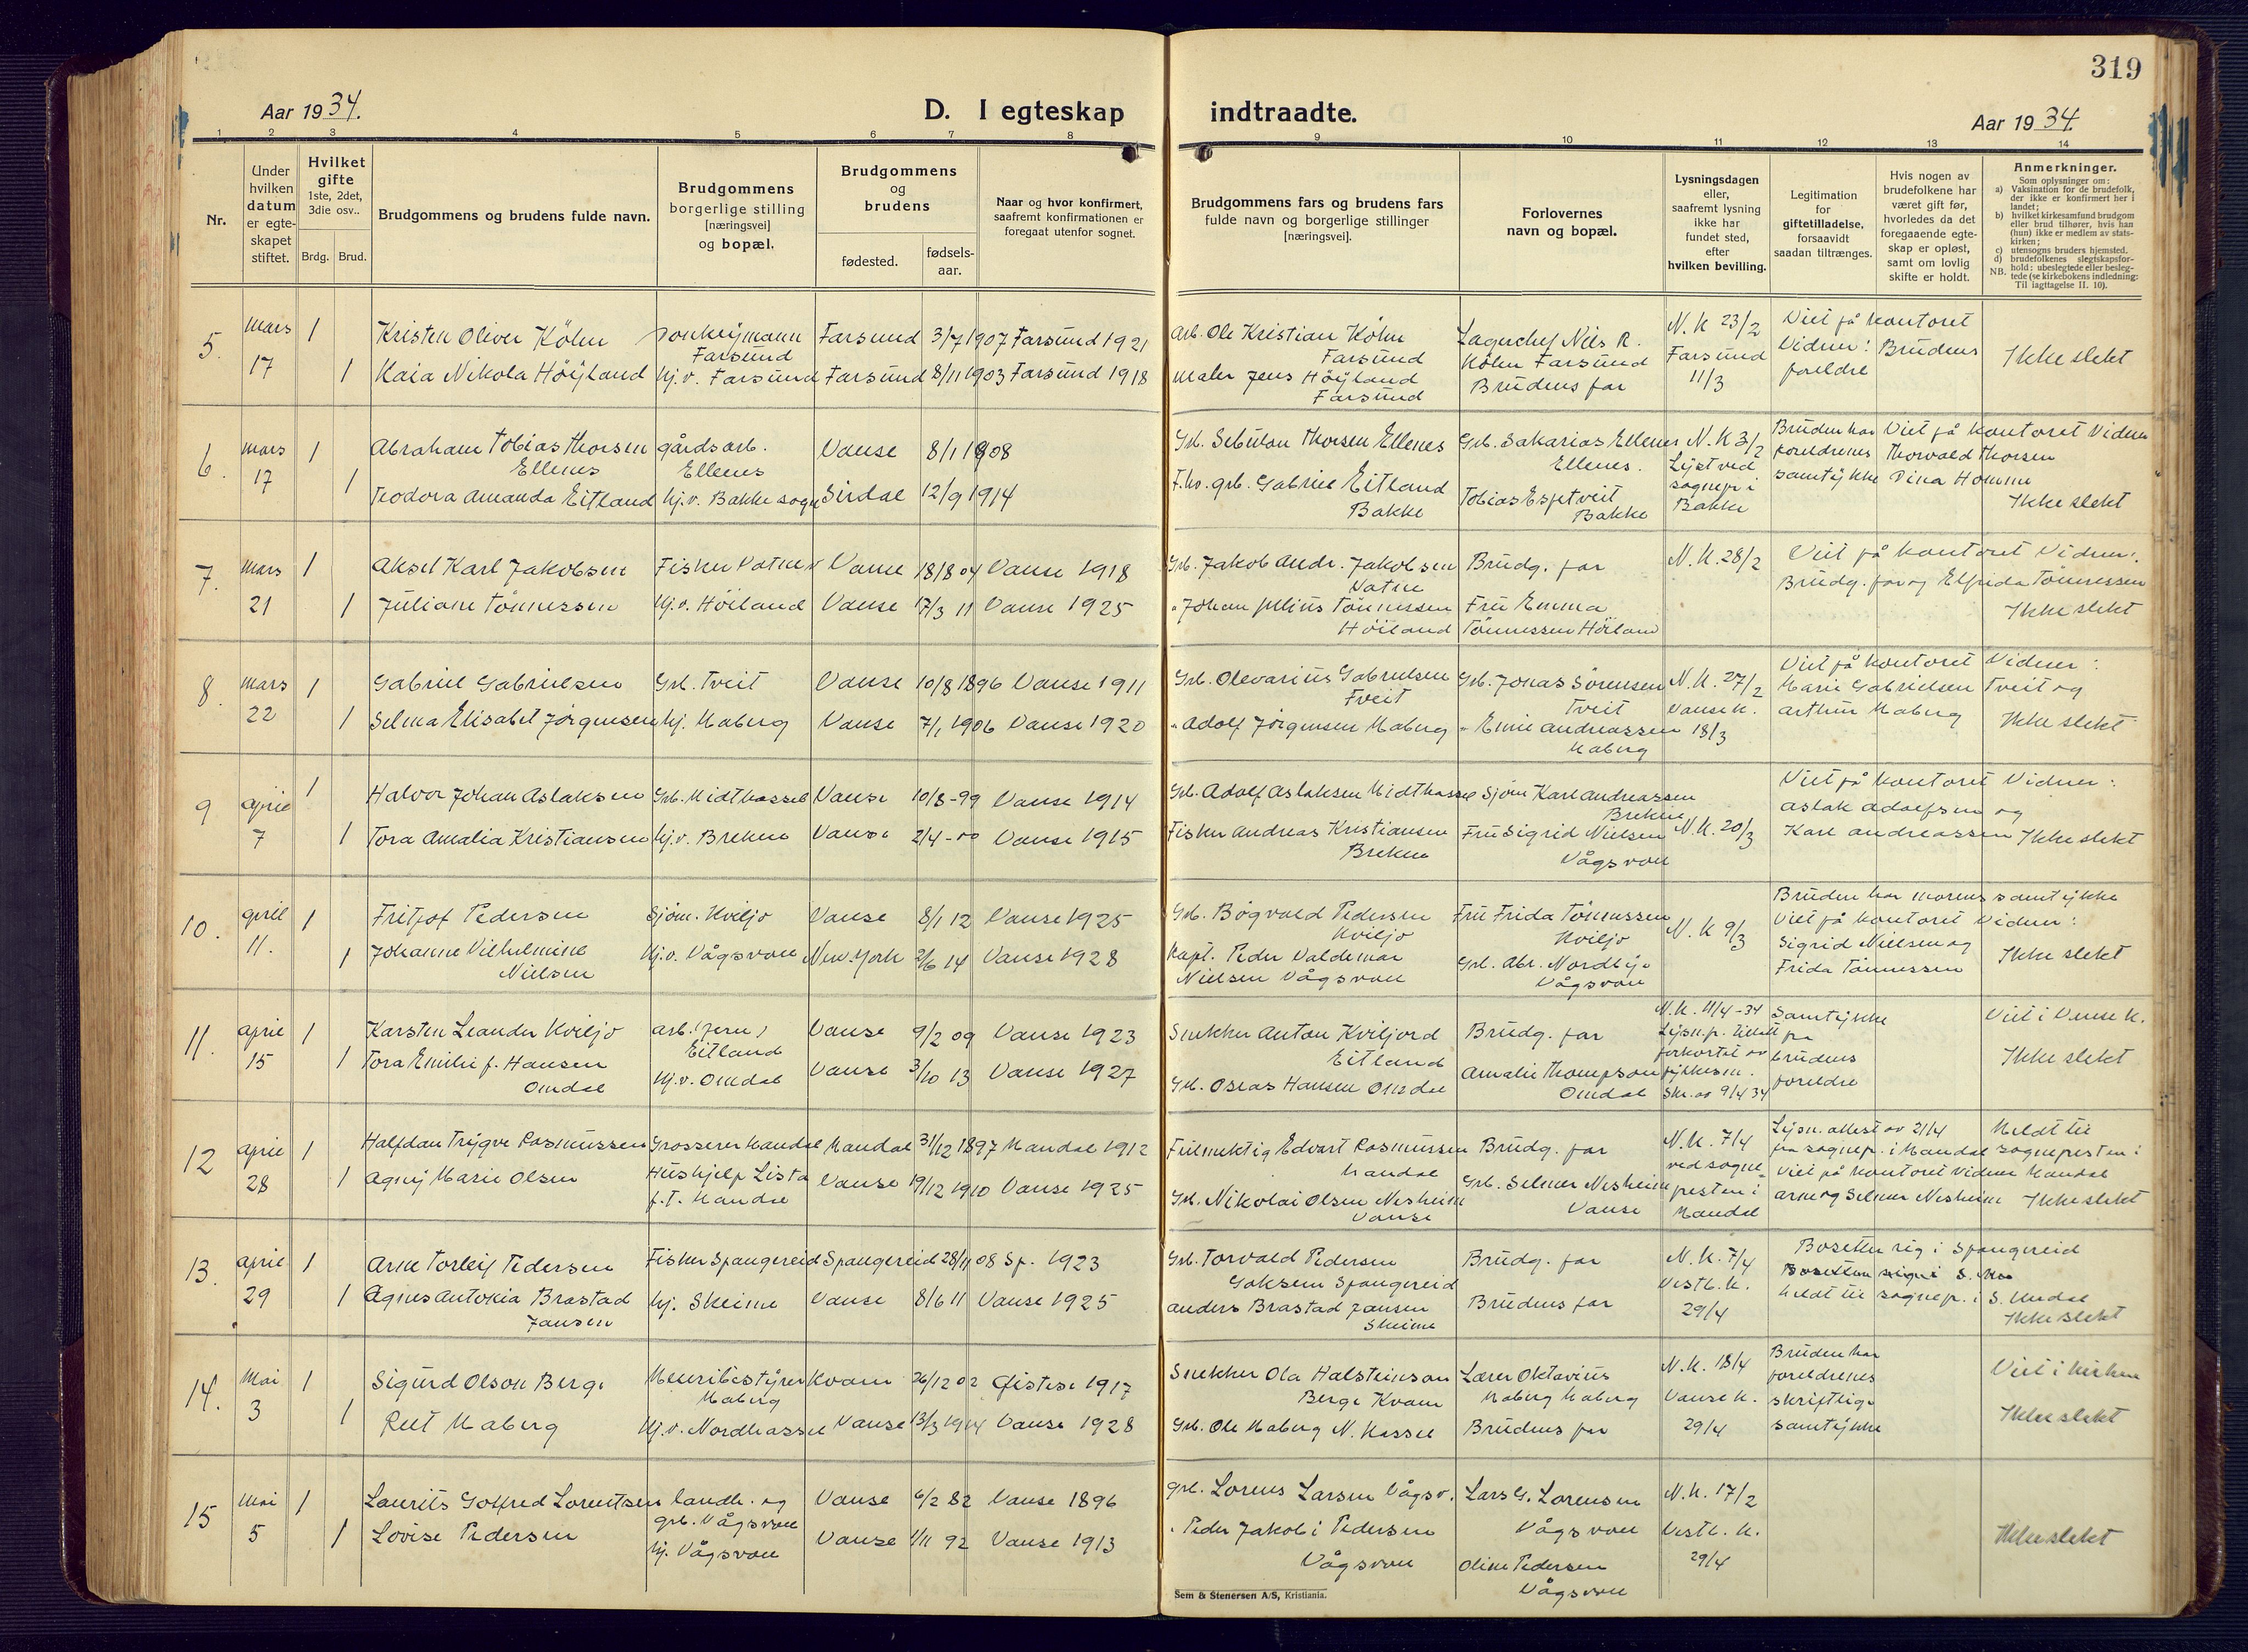 319
Aar 1934.
D. I egteskap indtraadte.
Aar 1934.
1 2 3 4 5 6 7 8 9 10 11 12 13 14
Nr.
Under
hvilken
datum
er egte-
skapet
stiftet.
Hvilket
gifte
1ste, 2det,
3die osv..
Brdg. Brud.
Brudgommens og brudens fulde navn.
Brudgommens
borgerlige stilling
[næringsvei]
og bopæl.
Brudgommens
og
brudens
fødested.
fødsels-
aar.
Naar og hvor konfirmert,
saafremt konfirmationen er
foregaat utenfor sognet.
Brudgommens fars og brudens fars
fulde navn og borgerlige stillinger
[næringsvei].
Forlovernes
navn og bopæl.
Lysningsdagen
eller,
saafremt lysning
ikke har
fundet sted,
efter
hvilken bevilling.
Legitimation
for
giftetilladelse,
forsaavidt
saadan tiltrænges.
Hvis nogen av
brudefolkene har
været gift før,
hvorledes da det
foregaaende egte-
skap er opløst,
samt om lovlig
skifte er holdt.
Anmerkninger.
Som oplysninger om:
a) Vaksination for de brudefolk,
der ikke er konfirmert her i
landet;
b) hvilket kirkesamfund brudgom
eller brud tilhører, hvis han
(hun) ikke er medlem av stats-
kirken;
c) utensogns bruders hjemsted.
d) brudefolkenes slegtskapsfor-
hold: ubeslegtede eller besleg-
NB. tede (se kirkebokens indledning:
Til iagttagelse II. 10).
5.
mars
17
1
1
Kristen Oliver Köhn
Kaia Nikola Höÿland
Farsund
hj.v. Farsund
Farsund 3/7 1907 Farsund 1921
Farsund 8/11 1903 Farsund 1918
Arb. Ole Kristian Köhn
Farsund
Maler Jens Höÿland
Farsund
Lagerchef Nils R.
Köhn Farsund
Brudens far
N.K 23/2
Farsund
11/3
Viet på kontoret
Vidner: Brudens
foreldre
Ikke slekt
6.
mars
17
1
1
Abraham Tobias Thorsen
Ellenes
Teodora Amanda Eitland
gårdsarb.
Ellenes
hj.v. Bakke sogn
Vanse 8/1 1908
Sirdal 12/9 1914
Grb. Sebulon Thorsen Ellenes
F.hv. grb. Gabriel Eitland
Bakke
Grb. Sakarias Ellenes
Ellenes.
Tobias Espetveit
Bakke
N.K 3/2
Lyst ved
sognepr i
Bakke
Bruden har
foreldrenes
samtykke
Viet på kontoret Vidner
Thorvald Thorsen
Dina Homme
Ikke slekt
7.
mars
21
1
1
Aksel Karl Jakobsen
Juliane Tönnessen
Fisker Vatne
hj.v. Höiland
Vanse 18/8 04 Vanse 1918
Vanse 17/3 11 Vanse 1925
Grb. Jakob Andr. Jakobsen
Vatne
" Johan Julius Tönnessen
Höiland
Brudg. far
Fru Emma
Tönnessen Höiland
N.K. 28/2
Viet på kontoret Vidner:
Brudg. far og Elfrida Tönnessen
Ikke slekt
8.
mars
22
1
1
Gabriel Gabrielsen
Selma Elisabet Jörgensen
Grb. Tveit
hj. Maberg
Vanse 10/8 1896 Vanse 1911
Vanse 7/1 1906 Vanse 1920
Grb. Olevarius Gabrielsen
Tveit
" Adolf Jörgensen Maberg
Grb. Jonas Sörensen
Tveit
" Emil Andreassen
Maberg
N.K. 27/2
Vanse K.
18/3
Viet på kontoret Vidner:
Marie Gabrielsen Tveit og
Arthur Maberg
Ikke slekt
9
april
7
1
1
Halvor Johan Aslaksen
Tora Amalia Kristiansen
Grb. Midthassel
hj.v. Brekne
Vanse 10/8-99 Vanse 1914
Vanse 2/4-00 Vanse 1915
Grb. Adolf Aslaksen Midthassel
Fisker Andreas Kristiansen
Brekne
Sjöm Karl Andreassen
Brekne
Fru Sigrid Nielsen
Vågsvoll
N.K. 20/3
Viet på kontoret Vidner:
Aslak Adolfsen og
Karl Andreassen
Ikke slekt
10.
april
11.
1
1
Fritjof Pedersen
Johanne Vilhelmine
Nielsen
Sjöm. Kviljo
hj.v. Vågsvoll
Vanse 8/1 12 Vanse 1925
New-York 2/6 14 Vanse 1928
Grb. Bögvald Pedersen
Kviljo
Kapt. Peder Valdemar
Nielsen Vågsvoll
Fru Frida Tönnessen
Kviljo
Grb. Abr. Nordbÿe
Vågsvoll
N.K 9/3
Bruden har morens samtykke
Viet på kontoret Vidner:
Sigrid Nielsen og
Frida Tönnessen
Ikke slekt
11.
april
15
1
1
Karsten Leander Kviljo
Tora Emilie f. Hansen
Omdal
arb. (jern)
Eitland
hj.v. Omdal
Vanse 9/2 09 Vanse 1923
Vanse 3/10 13 Vanse 1927
Snekker Anton Kviljord
Eitland
Grb. Oseas Hansen Omdal
Brudg. far
Amalie Thompson
Omdal
N.K. 11/4-34
forkortet av
fylkesm.
Skr. av 9/4 34
Samtykke
fra
brudens
foreldre
Viet i Vanse K.
Ikke slekt
12
april
28
1
1
Halfdan Trygve Rasmussen
Agny Marie Olsen
Grosserer Mandal
Hushjelp Lista
f.T. Mandal
Mandal 31/12 1897 Mandal 1912
Vanse 19/12 1910 Vanse 1925
Fulmektig Edvart Rasmussen
Mandal
Grb. Nikolai Olsen Nesheim
Vanse
Brudg. far
Grb. Selmer Nesheim
Vanse
N.K. 7/4
ved sogne-
presten i
Mandal
Lysn. attest av 21/4
fra sognep. i Mandal
Viet på kontoret Vidner
Arne og Selmer Nesheim
Meldt til
sognepresten i
Mandal
Ikke slekt
13.
april
29
1
1
Arne Torleif Pedersen
Agnes Antokia Brastad
Jansen
Fisker Spangereid
hj. Skeime
Spangereid 28/11 08 Sp. 1923
Vanse 8/6 11 Vanse 1925
Grb. Torvald Pedersen
Goksem Spangereid
Anders Brastad Jansen
Skeime
Brudg. far
Brudens far
N.K. 7/4
Vestb. K.
29/4
Bosetter sig i Spangereid
Bosetter sig i S.
Meldt til sognep. i S. Undal
Ikke slekt
14.
Mai
3
1
1
Sigurd Olson Berge
Rut Maberg
Meieribestyrer
Maberg
hj.v. Nordhassel
Kvam 26/12 02 Östese 1917
Vanse 13/3 1914 Vanse 1928
Snekker Ola Halsteinson
Berge Kvam
Grb. Ole Maberg N. Hassel
Lærer Oktavius
Maberg Maberg
Brudens far
N.K. 18/4
Vanse K.
29/4
Bruden har
foreldrenes
skriftlige
samtykke
Viet i kirken
Ikke slekt
15
Mai
5
1
1
Laurits Gotfred Lorentsen
Lovise Pedersen
landh. og
grb. Vågsvoll
hj. Vågsvoll
Vanse 6/2 82 Vanse 1896
Vanse 1/11 92 Vanse 1913
grb. Lorens Larsen Vågsv.
" Peder Jakobi Pedersen
Vågsvoll
Lars G. Lorensen
Vågsvoll
Oline Pedersen
Vågsvoll
N.K. 17/2
Vestb. K.
29/4
Ikke slekt
Sem & Stenersen A/S, Kristiania.